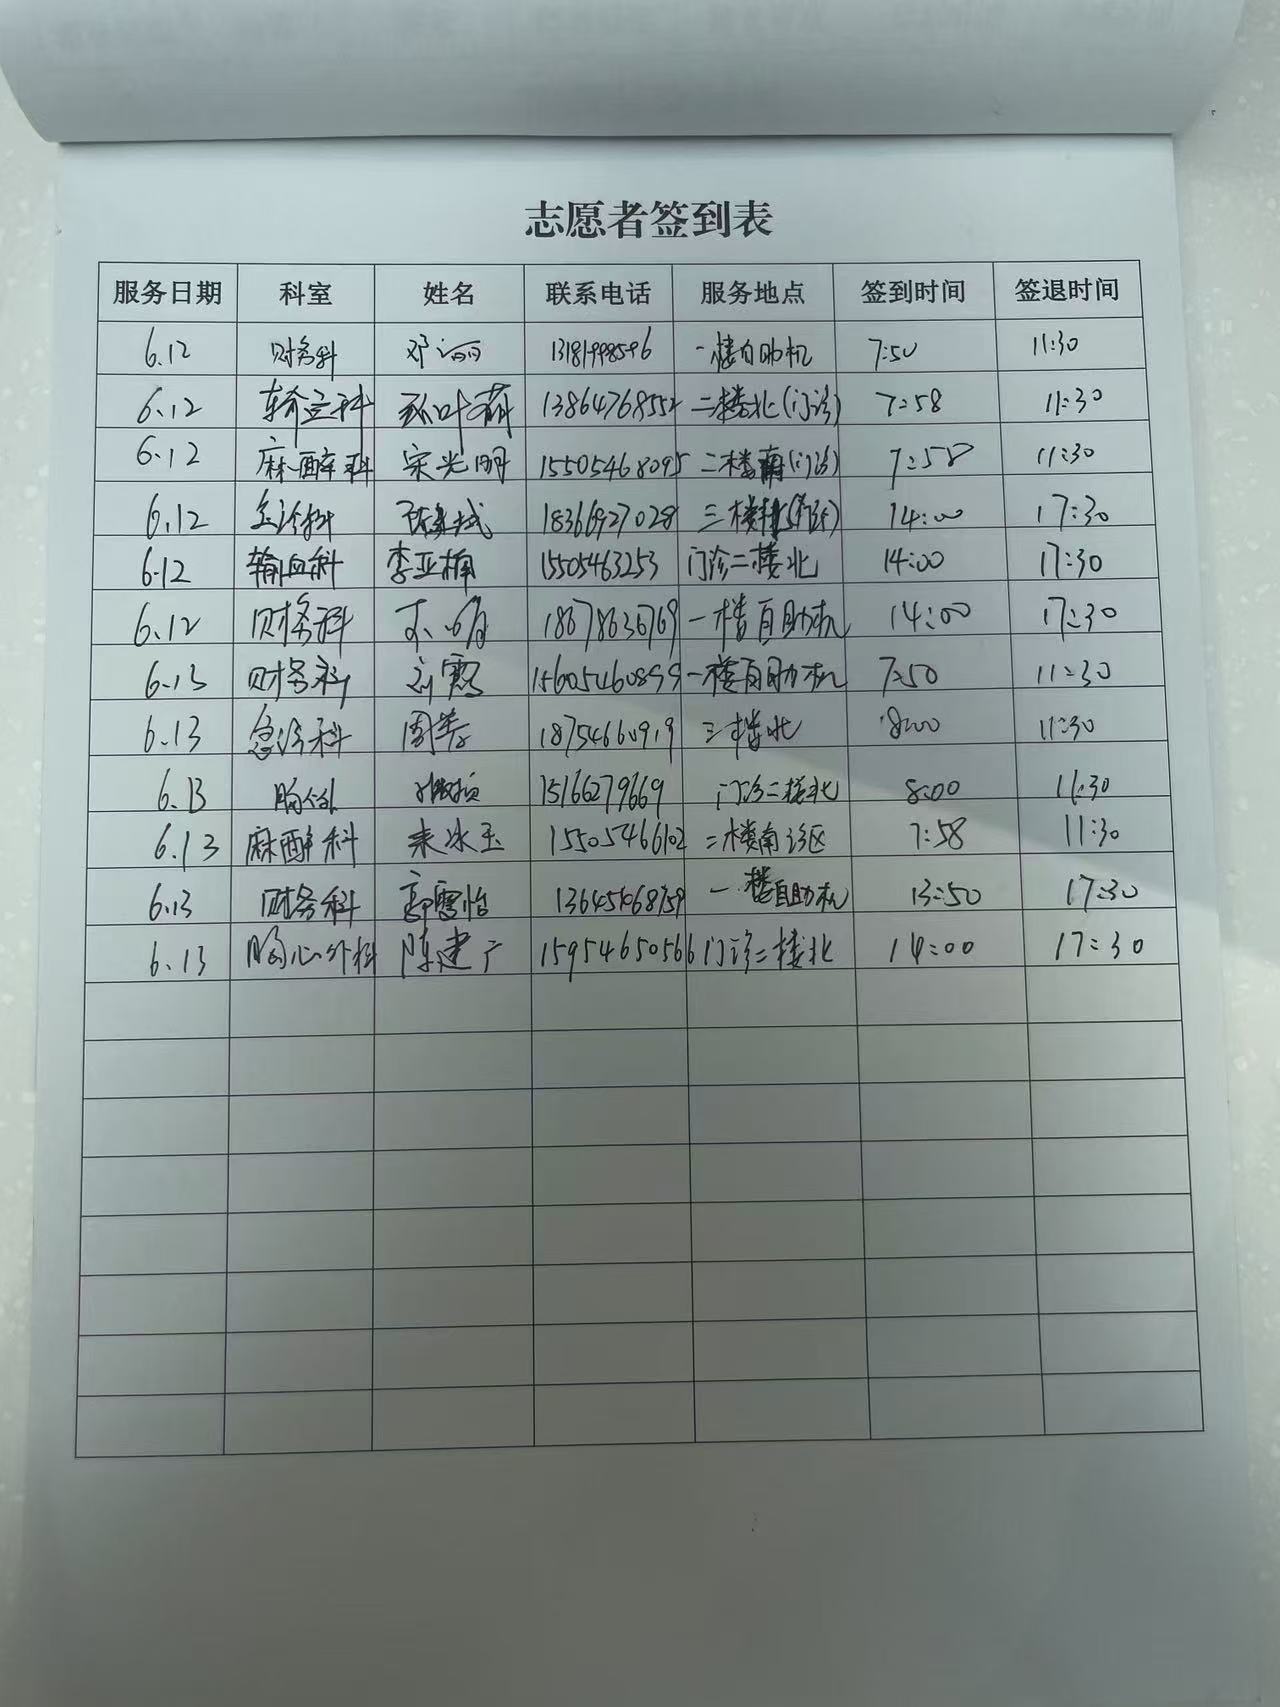 志愿者签到表
服务日期 科室 姓名 联系电话 服务地点 签到时间 签退时间
6.12 财务科 一楼自助机 7:50 11:30
6.12 输血科 13864768552 二楼北(门诊) 7:58 11:30
6.12 麻醉科 宋光明 15505468095 二楼南(门诊) 7:58 11:30
6.12 急诊科 18366927028 三楼 14:00 17:30
6.12 输血科 李亚楠 15505463253 门诊二楼北 14:00 17:30
6.12 财务科 18678636769 一楼自助机 14:00 17:30
6.13 财务科 刘霞 15605460899 一楼自助机 7:50 11:30
6.13 急诊科 18754660919 三楼北 8:00 11:30
6.13 15166279669 门诊二楼北 8:00 11:30
6.13 麻醉科 来冰玉 15505466102 二楼南诊区 7:58 11:30
6.13 财务科 一楼自助机 13:50 17:30
6.13 胸心外科 陈建广 15954650566 门诊二楼北 14:00 17:30